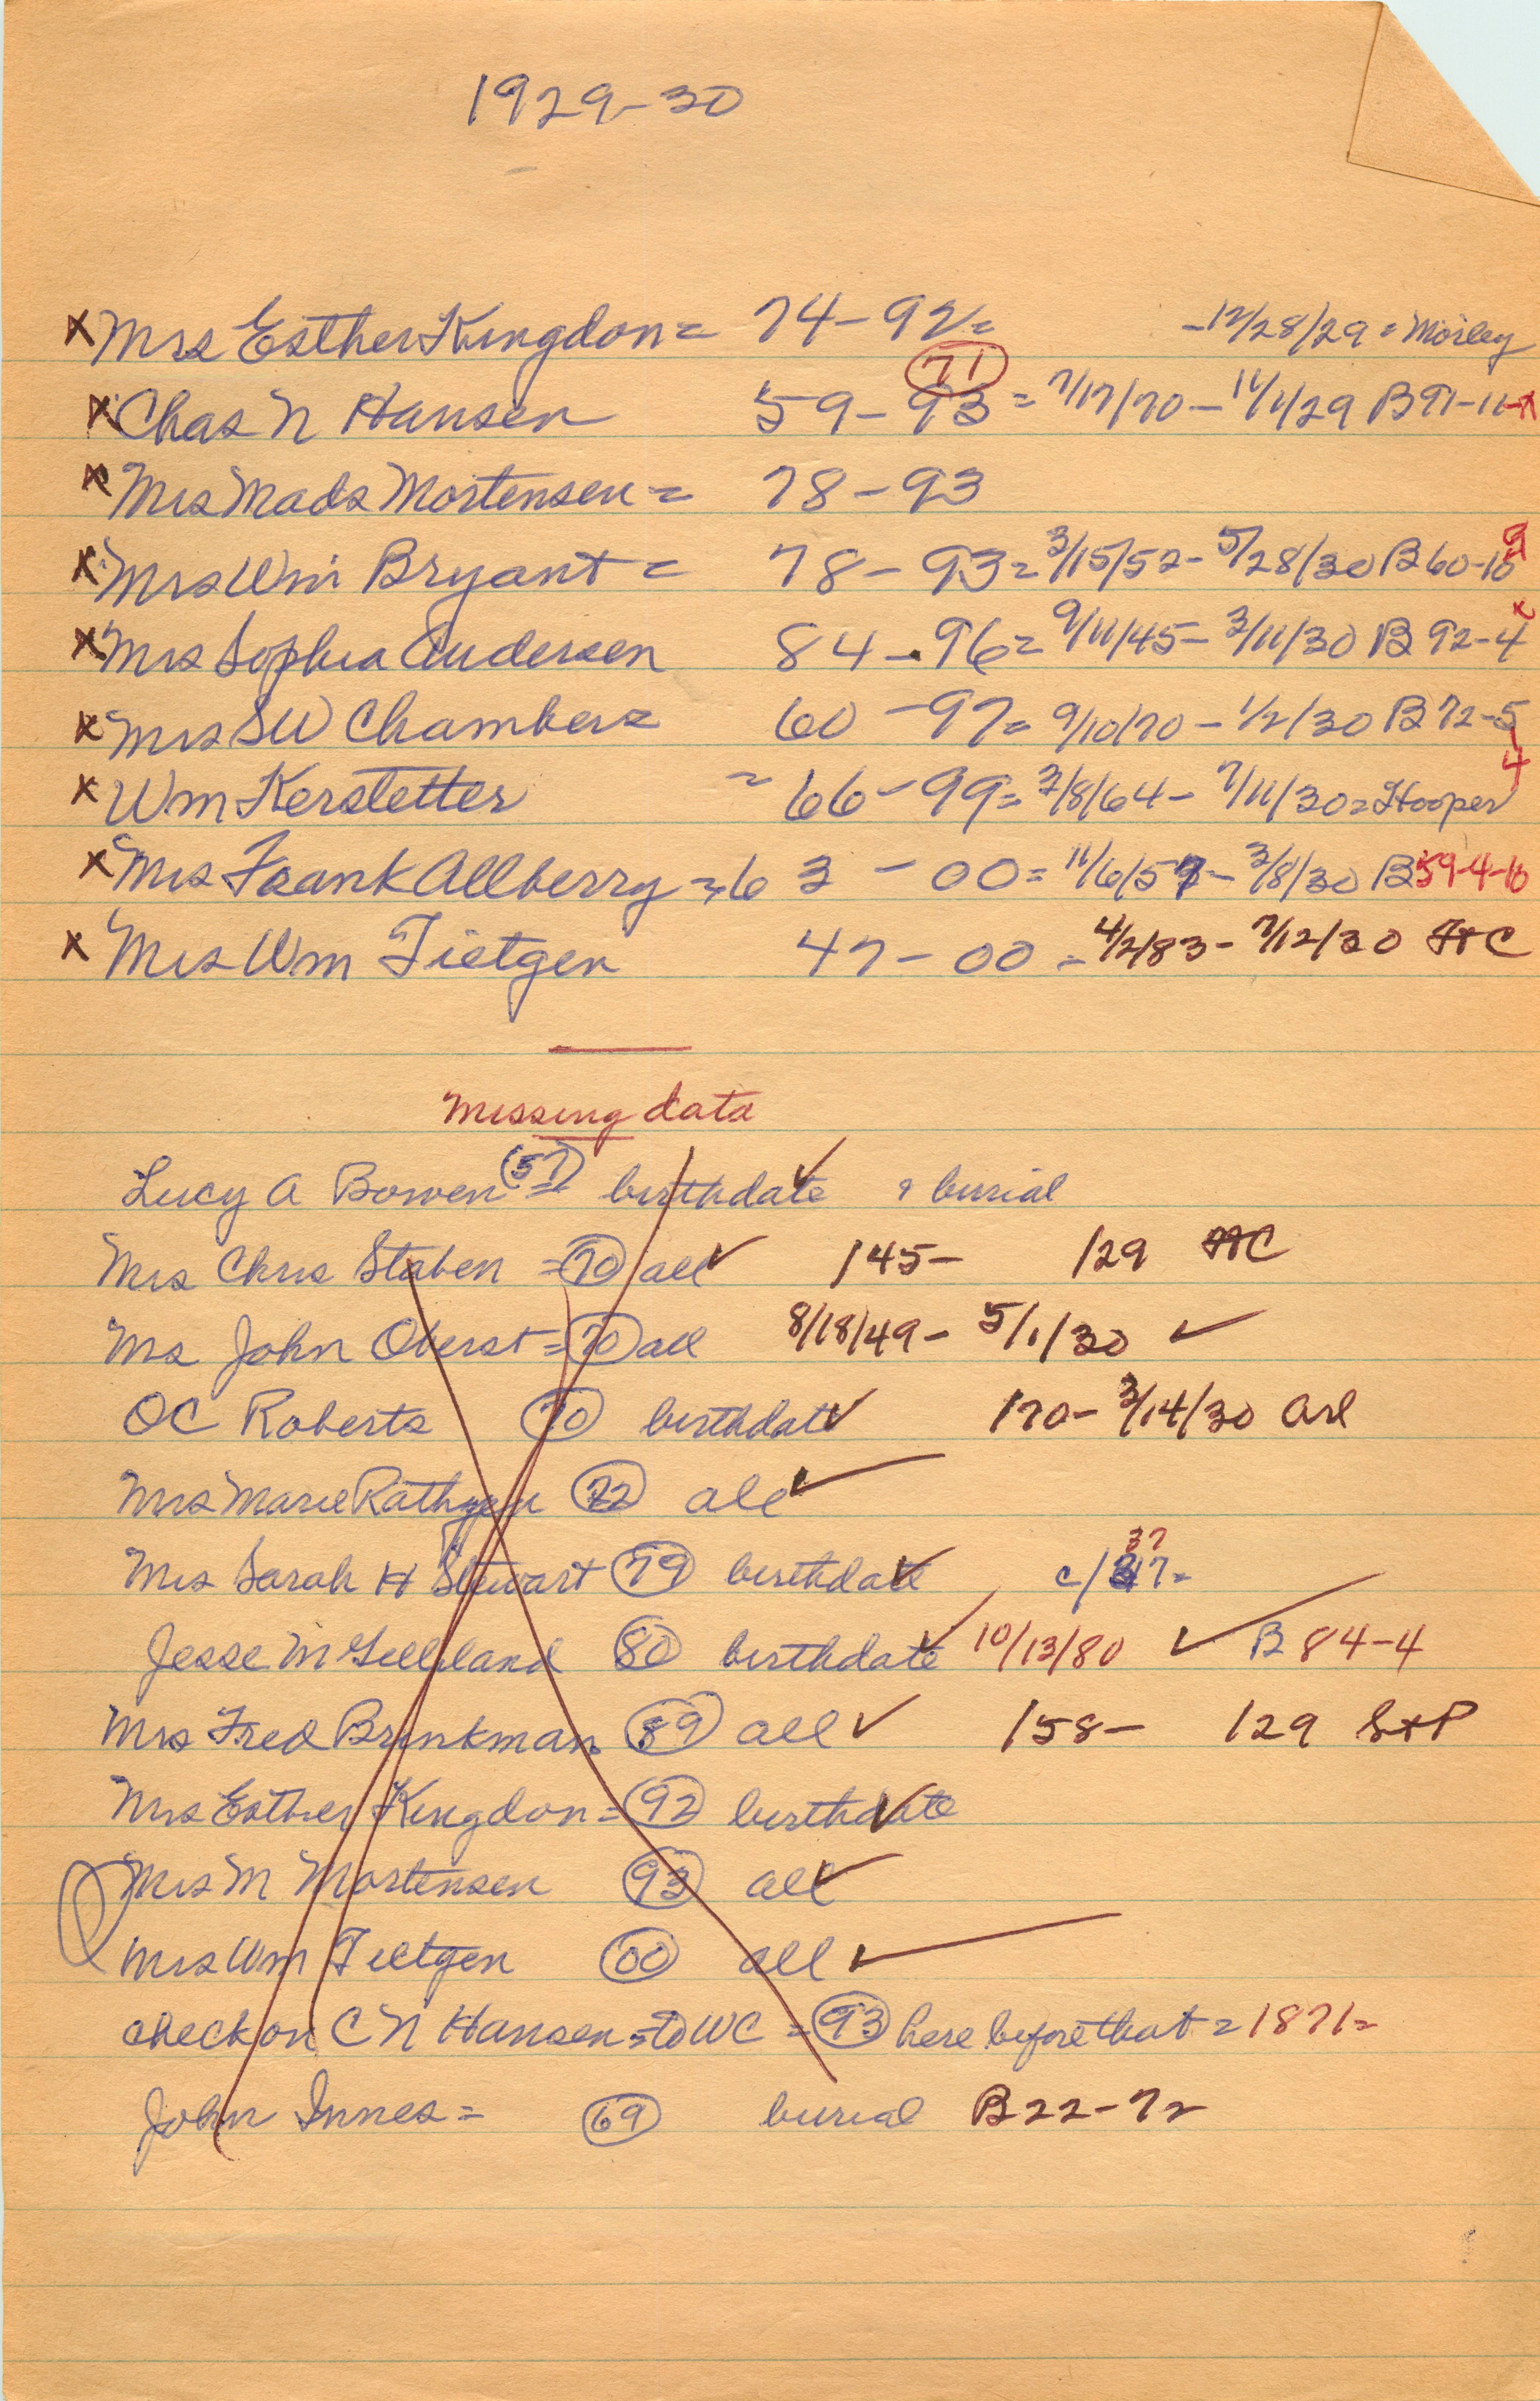 1929-30
x Mrs Esther Kingdon = 74-92 = -12/28/29 = Morley
71
x Chas N Hansen 59-93 = 7/17/70 - 11/1/29 B 91-11-x
x Mrs Mads Mortensen = 78-93
x Mrs Wm Bryant = 78-93 = 3/15/52 - 5/28/30 B 60-10
x Mrs Sophia Andersen 84-96 = 9/11/45 - 3/11/30 B 92-4
x Mrs SW Chambers 60-97 = 9/10/70 - 1/2/30 B 72-5
4
x Wm Kerstetter = 66-99 = 3/8/64 - 7/11/30 = Hooper
x Mrs Frank Allberry = 63-00 = 11/6/57 - 3/8/30 B 59-4-10
x Mrs Wm Tietgen 47-00 = 4/2/83 - 7/12/30 HC
Missing data
Lucy A Bowen (57) = birthdate ✓ & burial
Mrs Chris Staben = 70 all ✓ /45- /29 HC
Mrs John Oberst = 70 all 8/18/49 - 5/1/30 ✓
OC Roberts 70 birthdate ✓ /70 - 3/14/30 Arl
Mrs Marie Rathgen 72 all ✓
37
Mrs Sarah H Stewart 79 birthdate ✓ c/ =
Jesse McGilliland 80 birthdate ✓ 10/13/80 ✓ B 84-4
Mrs Fred Brinkman 89 all ✓ /58- /29 StP
Mrs Esther Kingdon = 92 birthdate ✓
Mrs M Mortensen 93 all ✓
Mrs Wm Tietgen 00 all ✓
check on C N Hansen = to WC = 93 here before that = 1871 =
John Innes = 69 burial B 22-72